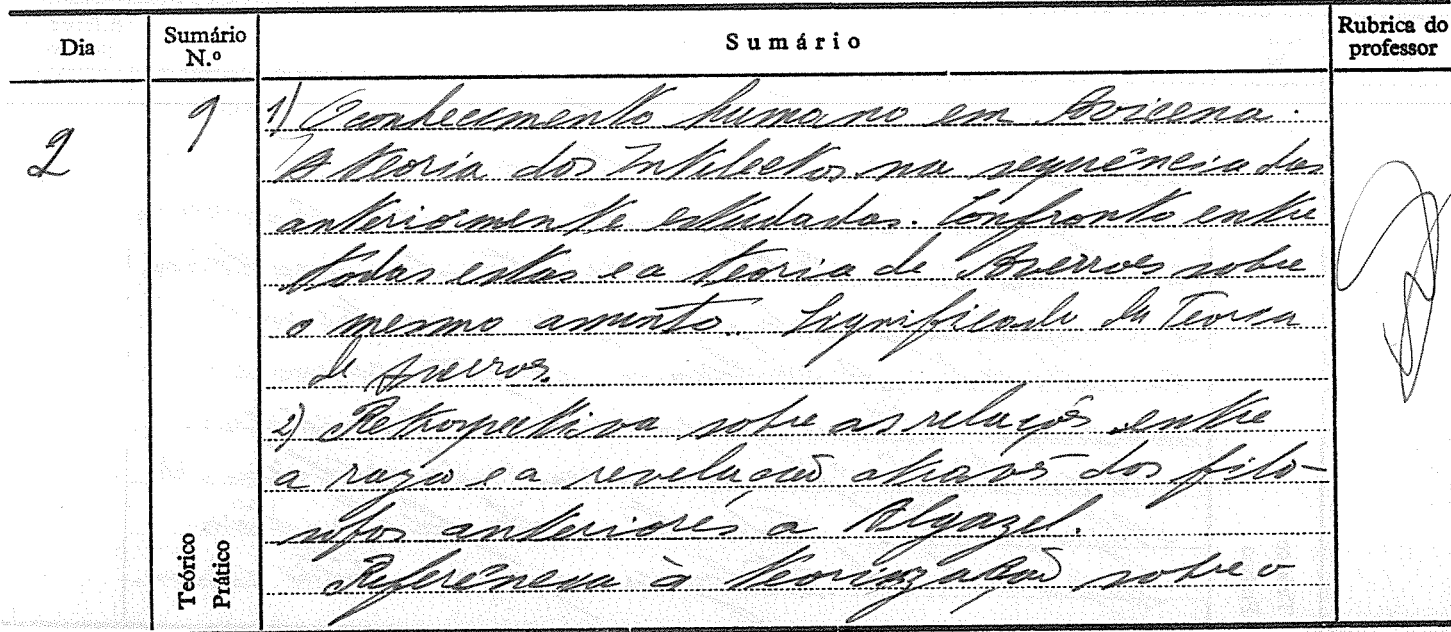 Dia
Sumário
N.º
Sumário
Rubrica do
professor
2
9
1) O conhecimento humano em Avicena.
A teoria dos Intelectos na sequência das
anteriormente estudadas. Confronto entre
todas estas e a teoria de Averroes sobre
o mesmo assunto. Significado da Teoria
de Averroes.
2) Retrospectiva sobre as relações entre
a razão e a revelação através dos filó-
sofos anteriores a Algazel.
Referência à teorização sobre o
Teórico
Prático